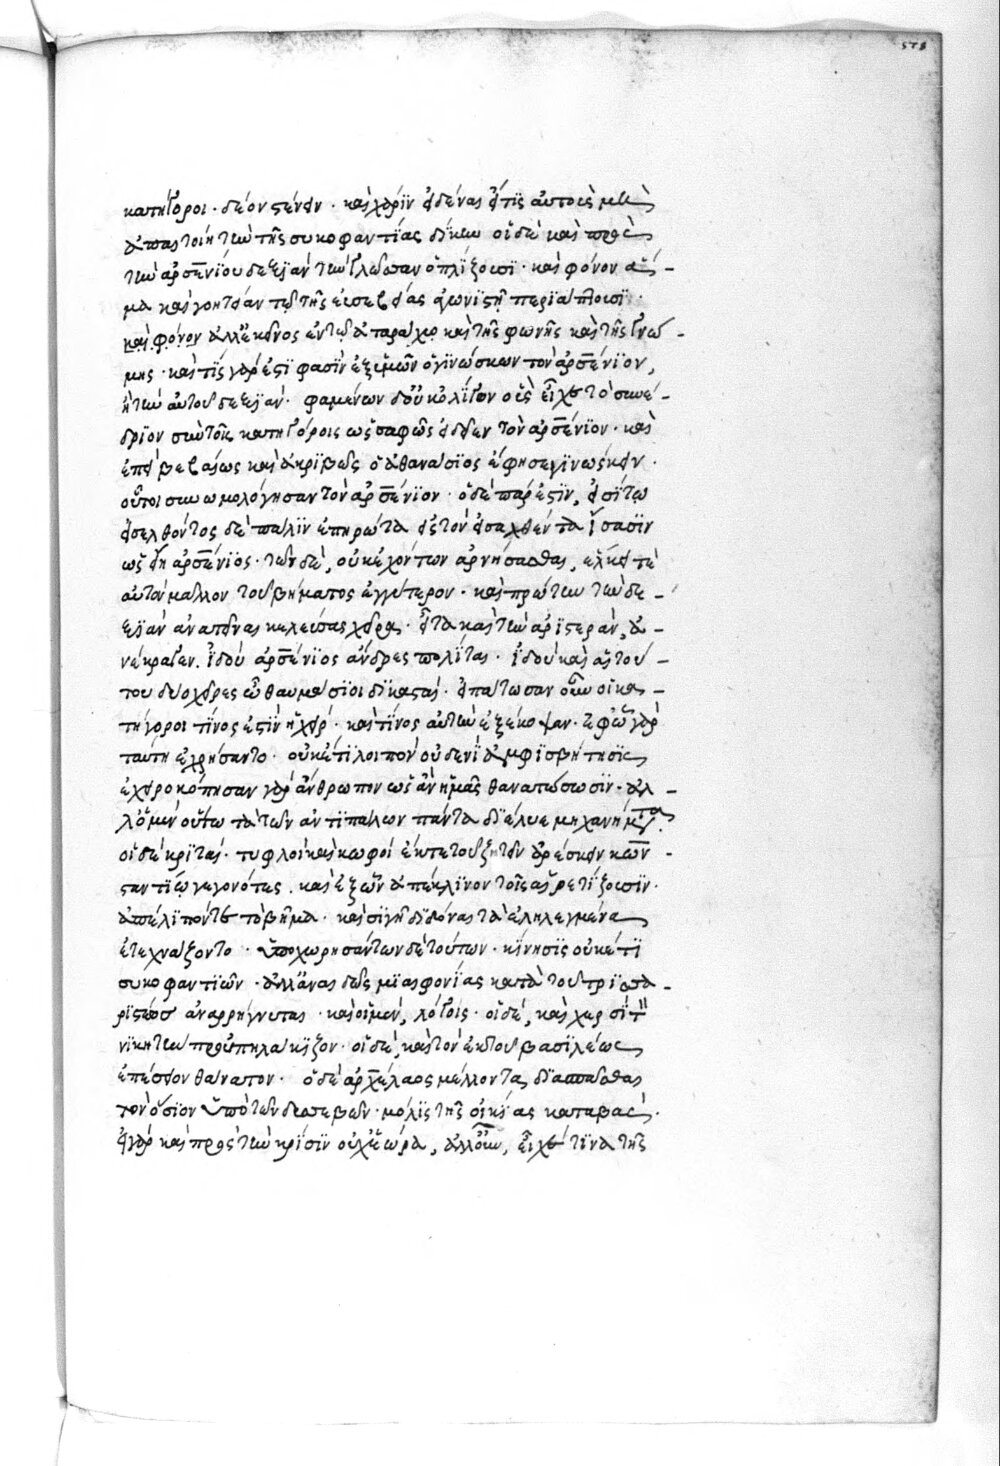 κατήγοροι· δέον στένειν· καὶ χάριν εἰδέναι εἴ τις αὐτοὺς μὲν
ἅπαιτοίη τὴν τῆς συκοφαντίας δίκην οἱ δὲ καὶ πρὸς
τὴν ἀρσενίου δεξιὰν τὴν γλῶσσαν ὁπλίζουσι· καὶ φόνον ἅ-
μα καὶ γοητείαν τῷ τῆς εὐσεβείας ἀγωνιστῇ περιάπτουσι·
καὶ φόνον ἀλλ' ἐκεῖνος ἐν τῷ ἀταράχῳ καὶ τῆς φωνῆς καὶ τῆς γνώ-
μης· καὶ τίς γάρ ἐστι φασὶν ἐξ ὑμῶν ὁ γινώσκων τὸν ἀρσένιον,
ἢ τὴν αὐτοῦ δεξιάν· φαμένων δ' οὐκ ὀλίγων οὓς εἶχε τὸ συνέ-
δριον σὺν τοῖς κατηγόροις ὡς σαφῶς εἰδεῖεν τὸν ἀρσένιον· καὶ
ἐπεὶ βεβαίως καὶ ἀκριβῶς ὁ ἀθανάσιος ἔφησε γινώσκειν·
οὗτοι συνωμολόγησαν τὸν ἀρσένιον· ὁ δὲ πάρεστιν, εἰσίτω
εἰσελθόντος δὲ πάλιν ἐπηρώτα εἰ τὸν εἰσαχθέντα ἴσασιν
ὡς εἴη ἀρσένιος· τῶν δὲ, οὐκ ἐχόντων ἀρνήσασθαι, εἵλκει τὲ
αὐτὸν μᾶλλον τοῦ βήματος ἐγγύτερον· καὶ πρώτην τὴν δε-
ξιὰν ἀνατεῖναι κελεύσας χεῖρα· εἶτα καὶ τὴν ἀριστεράν, ἀ-
νέκραγεν. ἰδοὺ ἀρσένιος ἄνδρες πολίται· ἰδοὺ καὶ αἱ τού-
του δύο χεῖρες ὦ θαυμάσιοι δικασταί· εἰπάτωσαν οὖν οἱ κα-
τήγοροι τίνος ἐστὶν ἡ χείρ· καὶ τίνος αὐτὴν ἐξέκοψαν· ἐφ' ᾧ γὰρ
ταύτῃ ἐχρήσαντο· οὐκέτι λοιπὸν οὐδενὶ ἀμφισβήτησις
ἐχειροκόπησαν γὰρ ἄνθρωπον ὡς ἂν ἡμᾶς θανατώσωσιν· ἀλ-
λ' ὁ μὲν οὕτω τὰ τῶν ἀντιπάλων πάντα διέλυε μηχανήματα.
οἱ δὲ κριταὶ· τυφλοὶ καὶ κωφοὶ ἐκ τε τοῦ ζητεῖν ἀρέσκειν κων-
σταντίῳ γεγονότες. καὶ ἐξ ὧν ἀπέκλινον τοῖς αἱρετίζουσιν·
ἀπέλιπόν τε τὸ βῆμα· καὶ σιγῇ διδόναι τὰ ἐληλεγμένα
ἐτεχνάζοντο· ὑποχωρησάντων δὲ τούτων· κίνησις οὐκέτι
συκοφαντιῶν· ἀλλ' ἄναιδῶς μιαιφονίας κατὰ τοῦ τρισα-
ριστέως ἀναρρήγνυται· καὶ οἱ μὲν, λόγοις· οἱ δὲ, καὶ χερσὶ τὸν
νικητὴν προὐπηλάκιζον· οἱ δὲ, καὶ τὸν ἐκ τοῦ βασιλέως
ἐπέσειον θάνατον· ὁ δὲ ἀρχέλαος μέλλοντα διασπᾶσθαι
τὸν ὅσιον ὑπὸ τῶν δυσσεβῶν· μόλις τῆς οἰκίας καταβὰς·
εἰ γὰρ καὶ πρὸς τὴν κρίσιν οὐχ ἑώρα, ἀλλ' οὖν, εἶχέ τινα τῆς